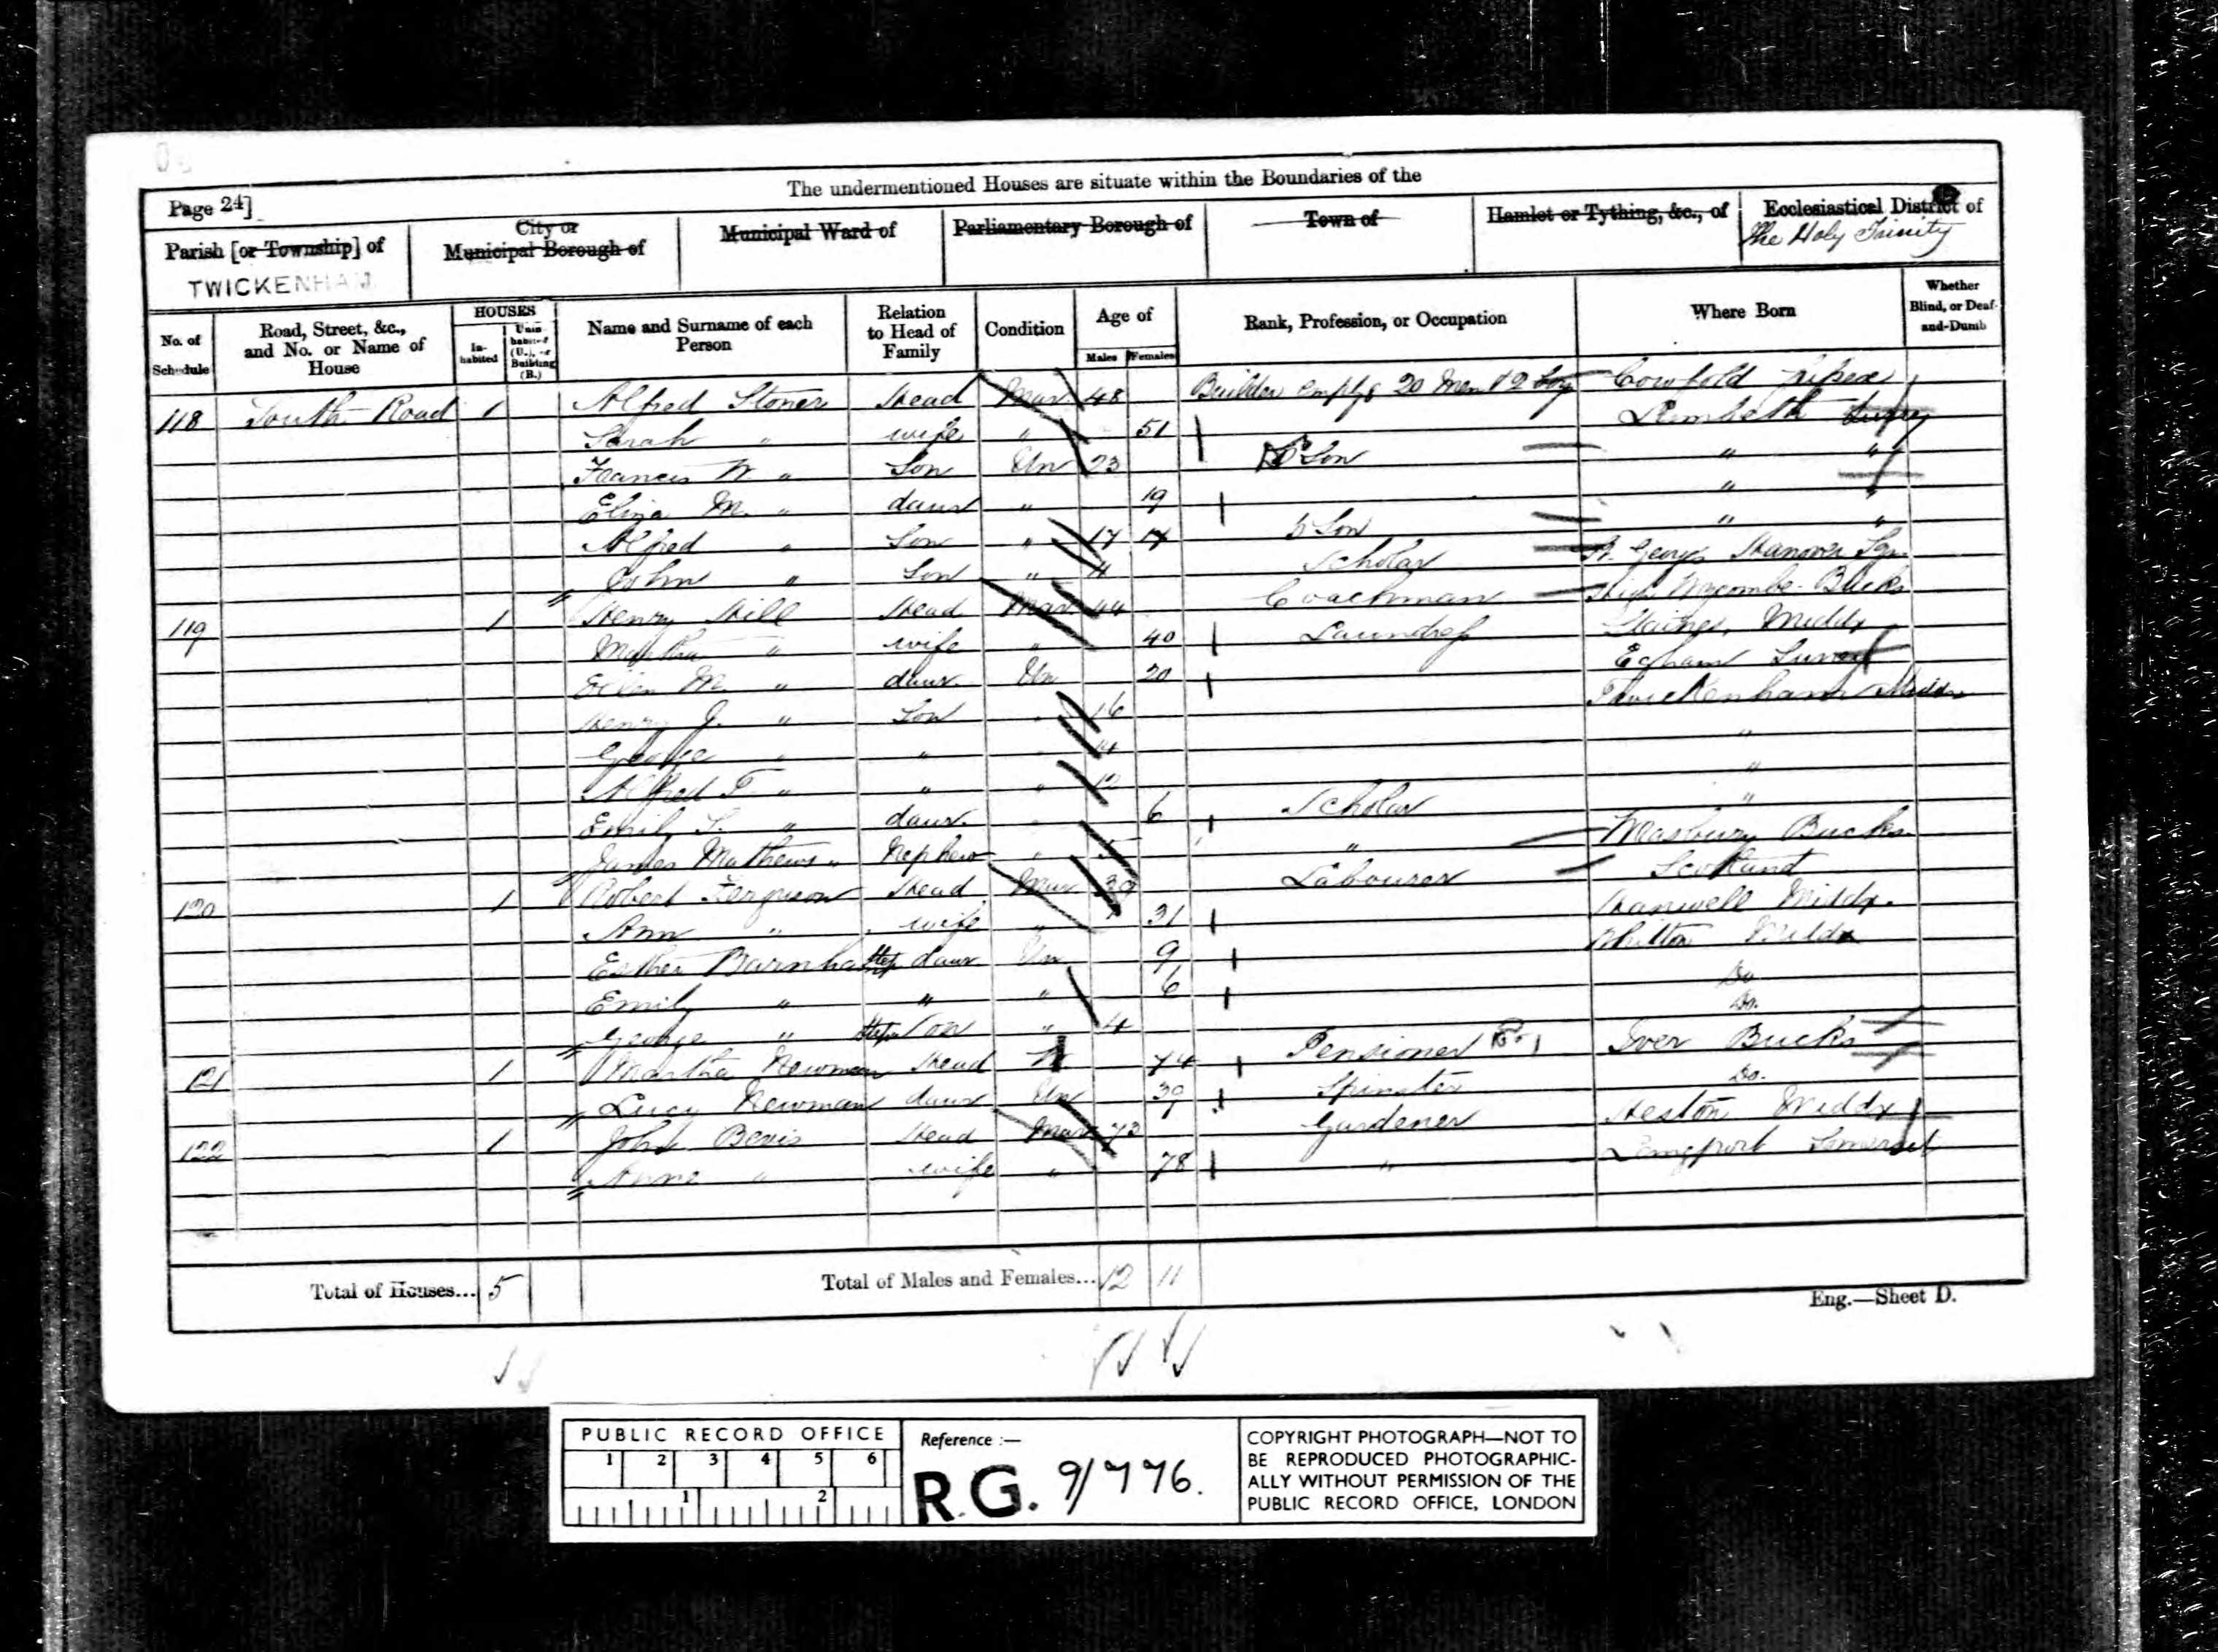 The undermentioned Houses are situate within the Boundaries of the
Page 24]
Parish [or Township] of
TWICKENHAM
City or
Municipal Borough of
Municipal Ward of
Parliamentary Borough of
Town of
Hamlet or Tything, &c., of
Ecclesiastical District of
The Holy Trinity
No. of Schedule
Road, Street, &c., and No. or Name of House
HOUSES
In-habited
Unin-habited (U.), or Building (B.)
Name and Surname of each Person
Relation to Head of Family
Condition
Age of
Males Females
Rank, Profession, or Occupation
Where Born
Whether Blind, or Deaf-and-Dumb
118 South Road 1 Alfred Stoner Head Mar 48 Builder 20 Men & 2 boys Cowfold
Sarah " wife " 51 Lambeth Surrey
Francis W. " Son Un 23 Son " "
Eliza M. " daur " 19 " "
Alfred " Son " 17 17 Son " "
John " Son " 4 Scholar St. Georges Hanover Sqr.
119 1 Henry Hill Head Mar 44 Coachman High Wycombe Bucks
Martha " wife " 40 Laundress Staines, Middx
Ellen M. " daur. Un 20 Egham Surrey
Henry J. " Son " 16 Twickenham Middx
George " " " "
Alfred F. " " " 12 "
Emily S. " daur. " 6 Scholar "
James Mathews " Nephew " " Bucks.
120 1 Robert Ferguson Head Mar 39 Labourer Scotland
Ann " wife " 31 Hanwell Middx.
Esther Barnham Step daur Un 9 Whitton Middx
Emily " " " 6 Do
George " Step Son " 4 Do.
121 1 Martha Newman Head W. 74 Pensioner Iver Bucks
Lucy Newman daur Un 39 Spinster Do.
122 1 John Bevis Head Mar 73 Gardener Heston Middx
Anne " wife " 78 " Langport Somerset
Total of Houses... 5
Total of Males and Females... 12 11
Eng.—Sheet D.
PUBLIC RECORD OFFICE
1 2 3 4 5 6
1 2
Reference :—
R.G. 9/776.
COPYRIGHT PHOTOGRAPH—NOT TO
BE REPRODUCED PHOTOGRAPHIC-
ALLY WITHOUT PERMISSION OF THE
PUBLIC RECORD OFFICE, LONDON